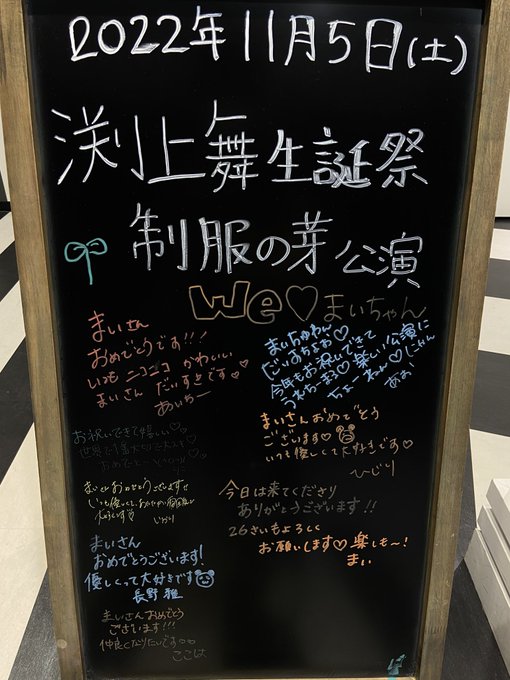 2022年11月5日(土)
渕上舞生誕祭
制服の芽公演
We♡まいちゃん
まいさん
おめでとうです!!!
いつもニコニコ かわいい
まいさん だいすきです♡
あいやー
まいちゅわん
だいすちょお♡
今年もお祝いできて
うれちーお♡ 楽しい公演に
ちょーねっ♡ じゃん
あお
まいさんおめでとう
ございます♡
いつも優しくて大好きです♡
ひじり
お祝いできて嬉しい♡
世界で1番大切で大スキ
おめでとう
まいさんおめでとうございます
いつも優しくて
大好きです♡
今日は来てくださり
ありがとうございます!!
26さいもよろしく
お願いします♡ 楽しも〜!
まい
まいさん
おめでとうございます!
優しくって大好きです
長野雅
まいさんおめでとう
ございます!!!
仲良くなりたいです
ここは